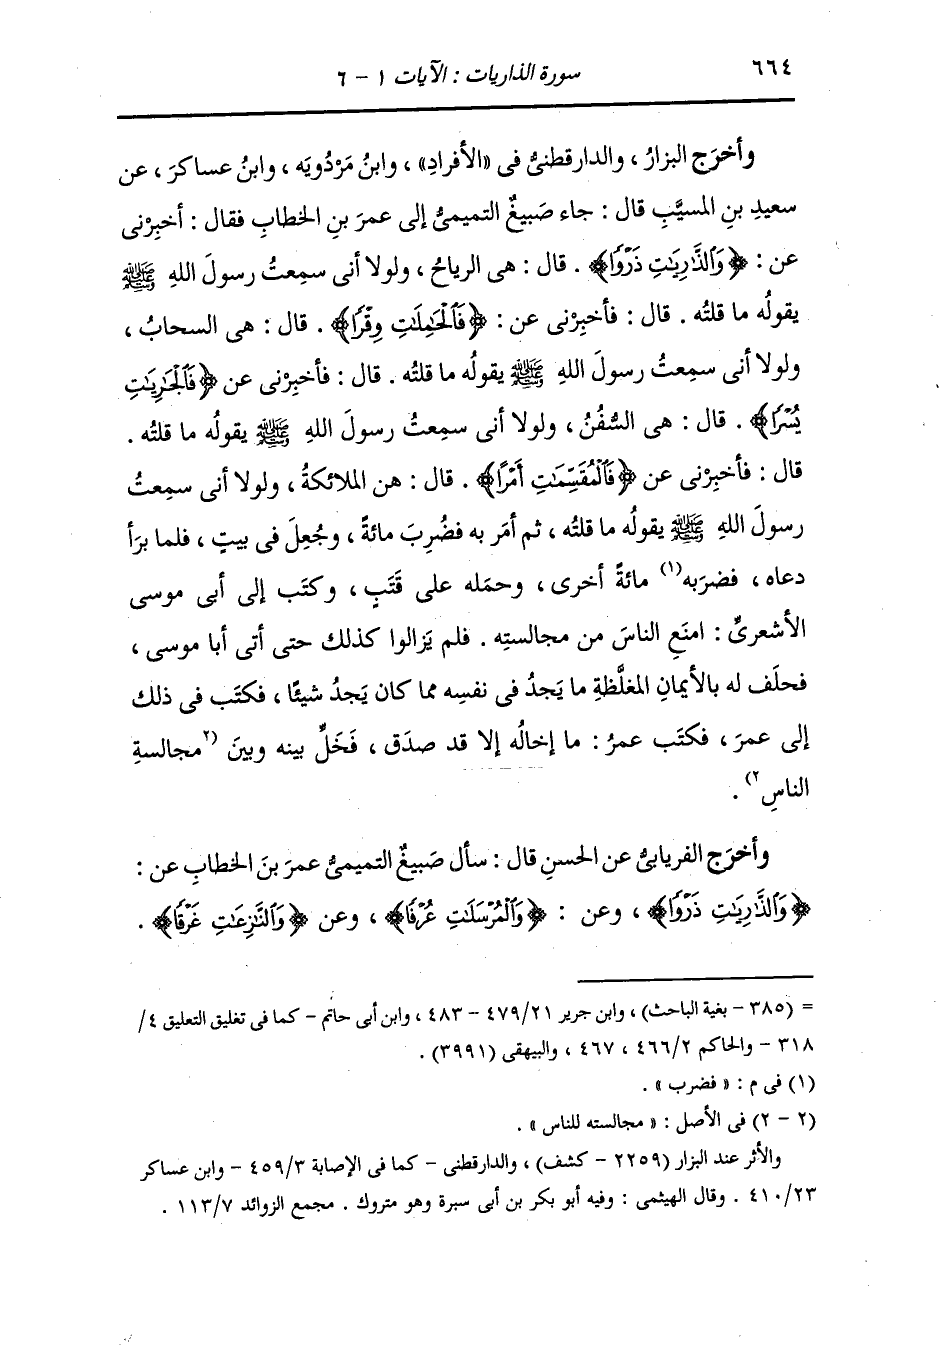 ٦٦٤
سورة الذاريات : الآيات ١ - ٦
وأخرَج البزارُ ، والدارقطنىُّ فى «الأفرادِ» ، وابنُ مَرْدُويَه ، وابنُ عساكرَ ، عن
سعيدِ بنِ المسيَّبِ قال : جاء صَبِيغٌ التميمىُّ إلى عمرَ بنِ الخطابِ فقال : أخبِرْنى
عن : ﴿وَٱلذَّٰرِيَٰتِ ذَرْوًا﴾ . قال : هى الرياحُ ، ولولا أنى سمِعتُ رسولَ اللهِ ﷺ
يقولُه ما قلتُه . قال : فأخبِرْنى عن : ﴿فَٱلْحَٰمِلَٰتِ وِقْرًا﴾ . قال : هى السحابُ ،
ولولا أنى سمِعتُ رسولَ اللهِ ﷺ يقولُه ما قلتُه . قال : فأخبِرْنى عن ﴿فَٱلْجَٰرِيَٰتِ
يُسْرًا﴾ . قال : هى السُّفُنُ ، ولولا أنى سمِعتُ رسولَ اللهِ ﷺ يقولُه ما قلتُه .
قال : فأخبِرْنى عن ﴿فَٱلْمُقَسِّمَٰتِ أَمْرًا﴾ . قال : هن الملائكةُ ، ولولا أنى سمِعتُ
رسولَ اللهِ ﷺ يقولُه ما قلتُه ، ثم أمَر به فضُرِبَ مائةً ، وجُعِلَ فى بيتٍ ، فلما برَأ
دعاه ، فضرَبه(١) مائةً أخرى ، وحمَله على قَتَبٍ ، وكتَب إلى أبى موسى
الأشعرىِّ : امنَعِ الناسَ من مجالستِه . فلم يَزالوا كذلك حتى أتى أبا موسى ،
فحلَف له بالأيمانِ المغلَّظةِ ما يَجدُ فى نفسِه مما كان يَجدُ شيئًا ، فكتَب فى ذلك
إلى عمرَ ، فكتَب عمرُ : ما إخالُه إلا قد صدَق ، فَخَلِّ بينه وبينَ (٢مجالسةِ
الناسِ٢) .
وأخرَج الفريابىُّ عن الحسنِ قال : سأل صَبِيغٌ التميمىُّ عمرَ بنَ الخطابِ عن :
﴿وَٱلذَّٰرِيَٰتِ ذَرْوًا﴾ ، وعن : ﴿وَٱلْمُرْسَلَٰتِ عُرْفًا﴾ ، وعن ﴿وَٱلنَّٰزِعَٰتِ غَرْقًا﴾ .
= (٣٨٥ - بغية الباحث) ، وابن جرير ٢١/ ٤٧٩ - ٤٨٣ ، وابن أبى حاتم - كما فى تغليق التعليق ٤/
٣١٨ - والحاكم ٢/ ٤٦٦ ، ٤٦٧ ، والبيهقى (٣٩٩١) .
(١) فى م : « فضرب » .
(٢ - ٢) فى الأصل : « مجالسته للناس » .
والأثر عند البزار (٢٢٥٩ - كشف) ، والدارقطنى - كما فى الإصابة ٣/ ٤٥٩ - وابن عساكر
٢٣/ ٤١٠ . وقال الهيثمى : وفيه أبو بكر بن أبى سبرة وهو متروك . مجمع الزوائد ٧/ ١١٣ .